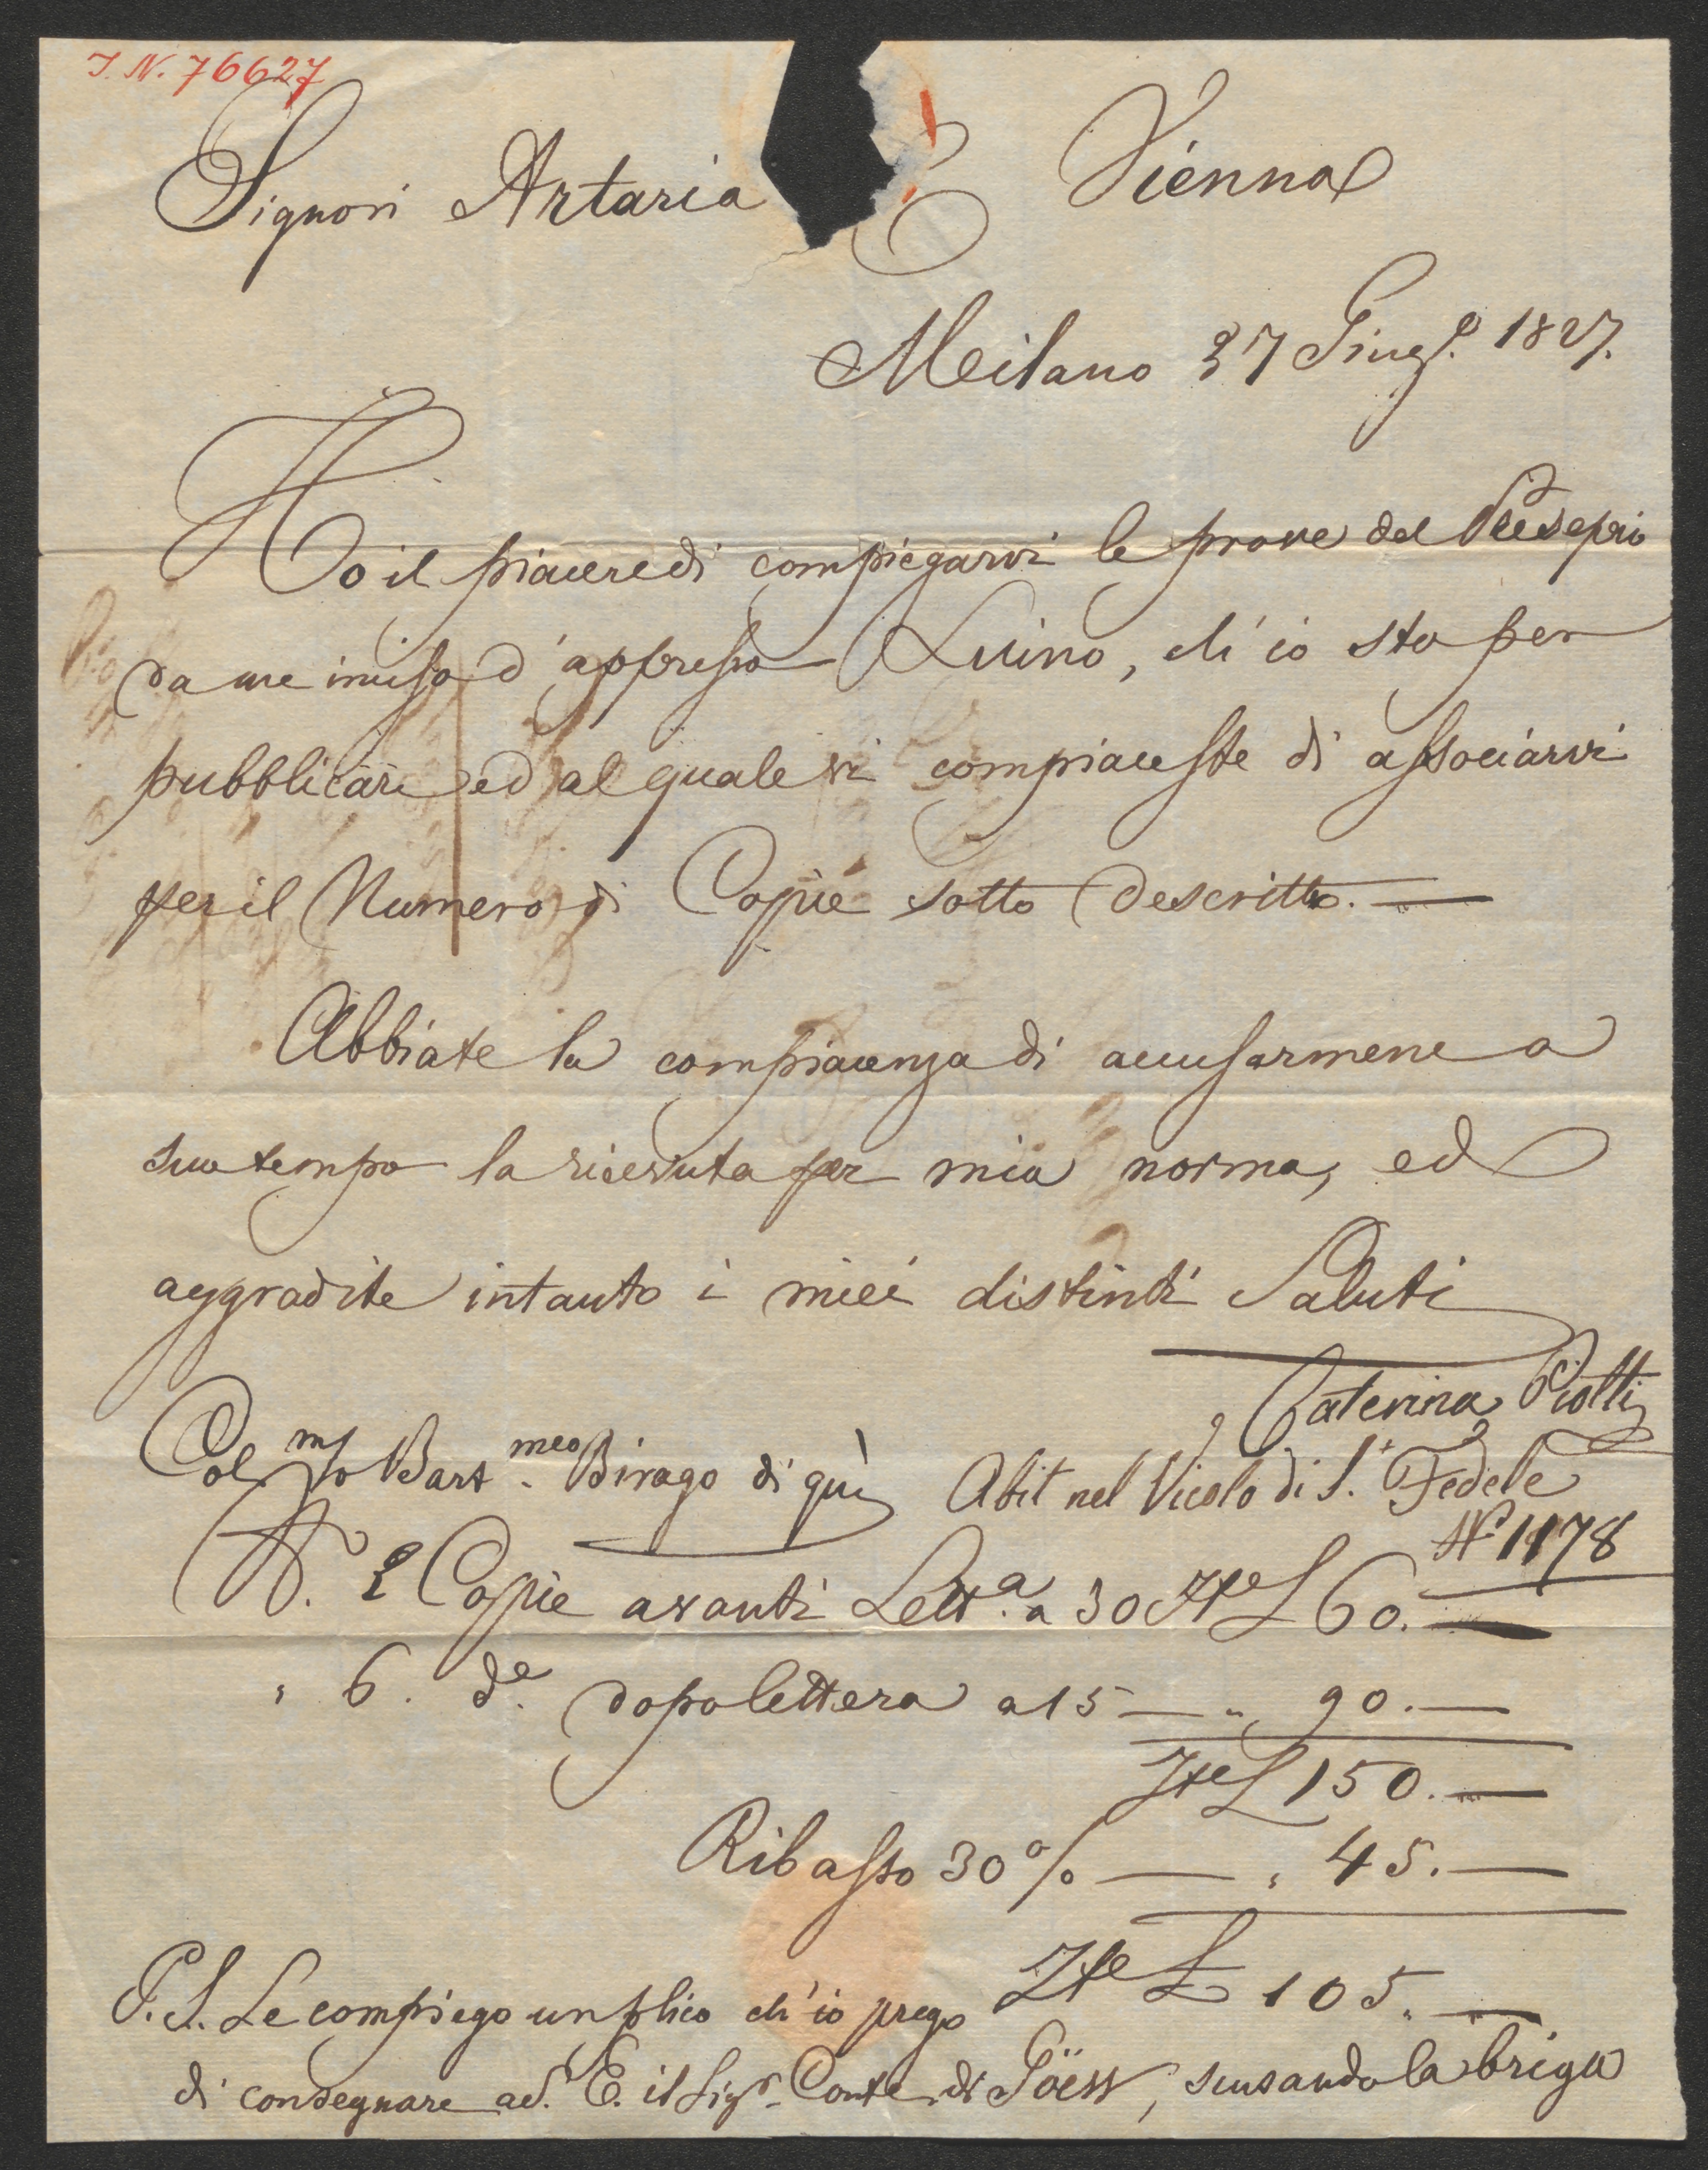 I. N. 76627
Signori Artaria
Vienna
Milano 27 Giug.o 1827.
Ho il piacere di compiegarvi le prove del Presepio
da me inciso d'appresso Luino, ch'io sto per
pubblicare ed al quale vi compiaceste di associarvi
per il Numero di Copie sotto descritto. —
Abbiate la compiacenza di accusarmene a
suo tempo la ricevuta per mia norma, ed
aggradite intanto i miei distinti Saluti
Caterina Piotti
Col mzo Bart.meo Birago di quì
Abit nel Vicolo di S. Fedele
No 1178
N. 2 Copie avanti Lett.a a 30 Ite L 60. —
" 6. d.e dopo lettera a 15 — " 90. —
Ite L 150. —
Ribasso 30 % — " 45. —
Ite L 105. —
P.S. Le compiego un plico ch'io prego
di consegnare a S. E. il Sigr. Conte di Göess, scusando la briga